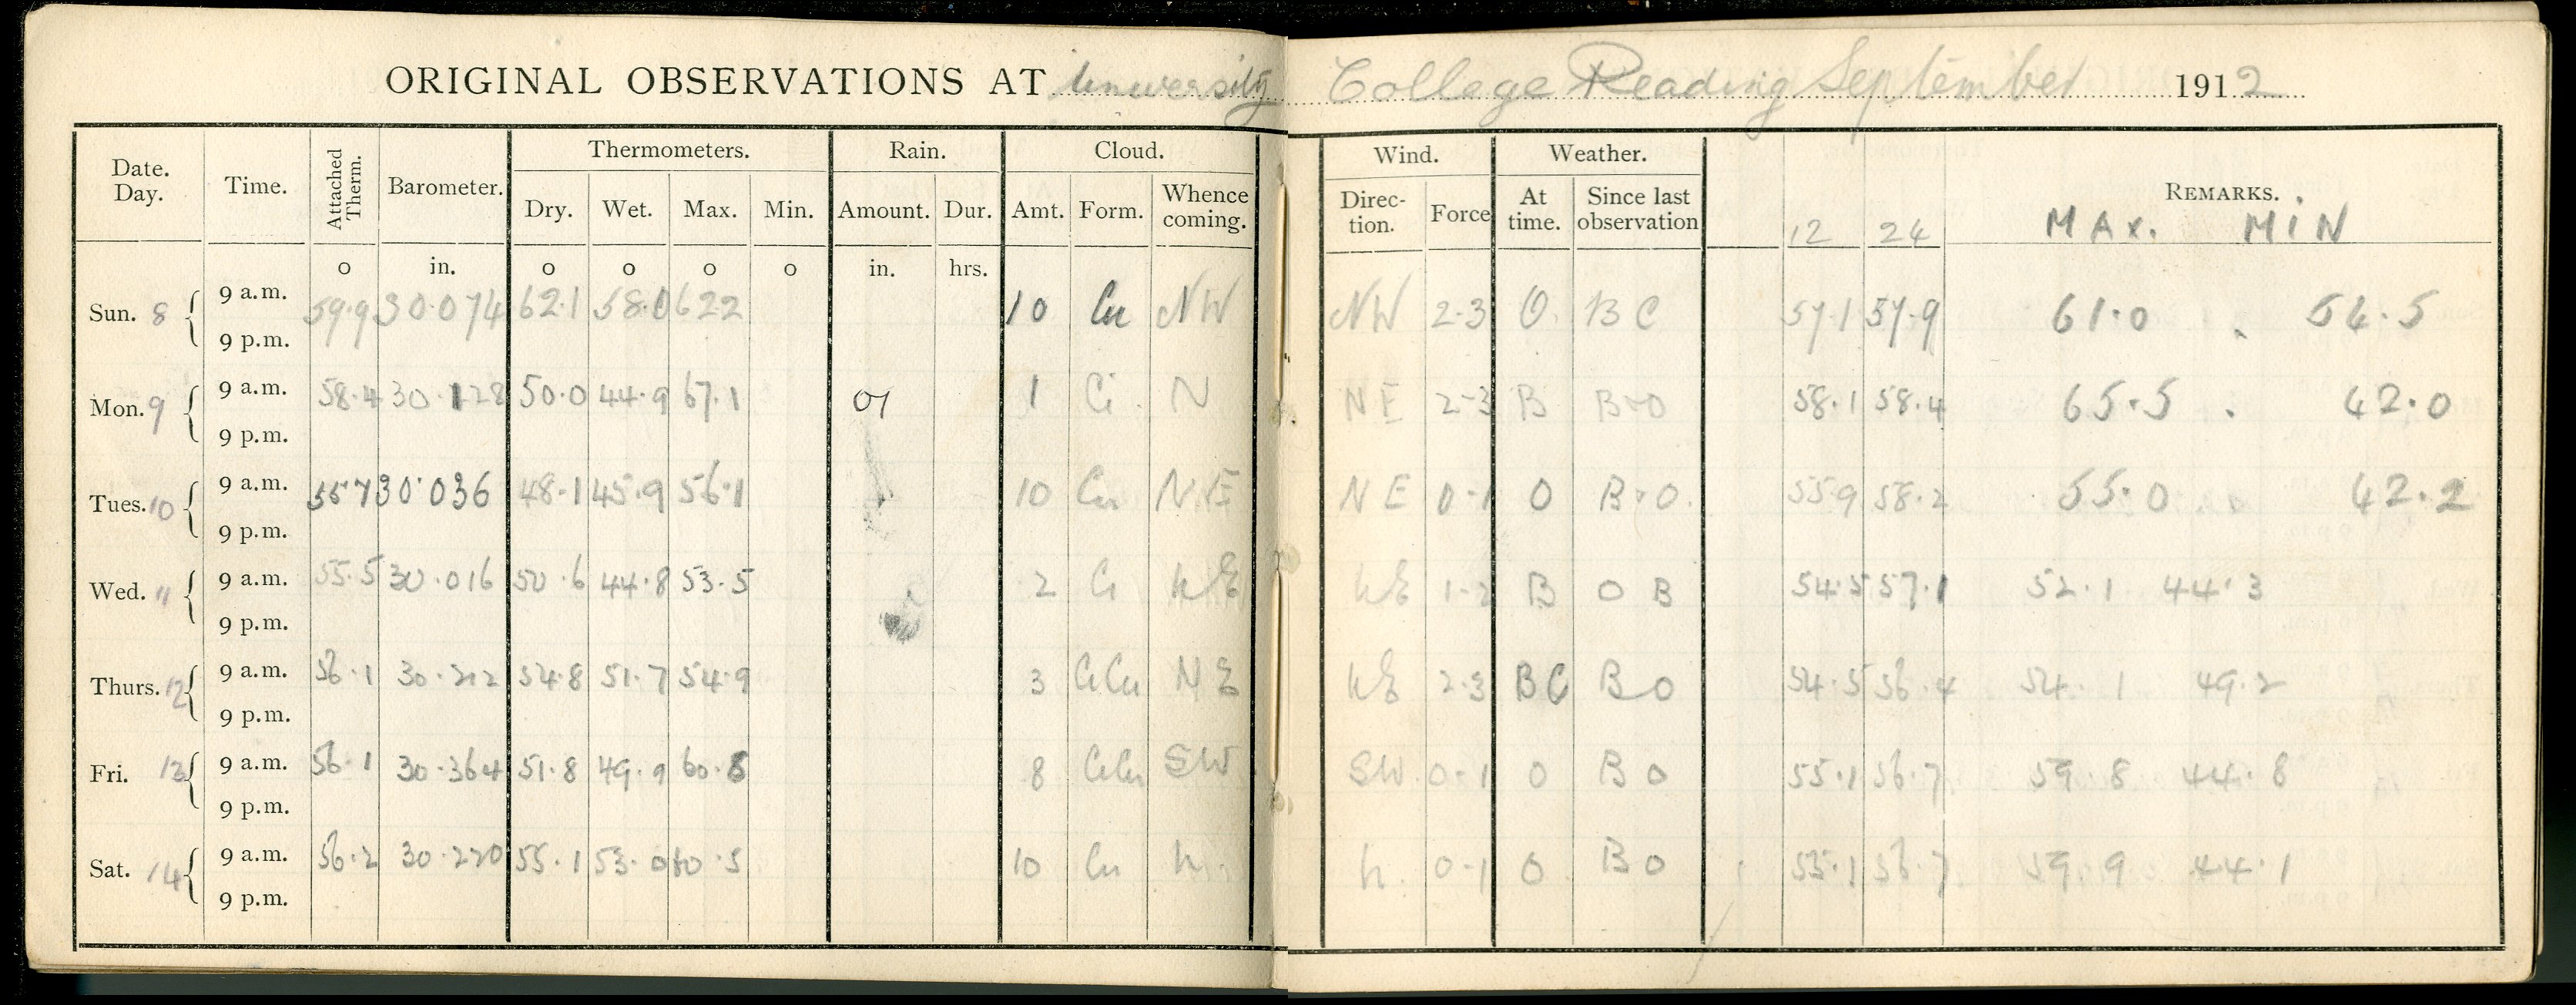 ORIGINAL OBSERVATIONS AT University College Reading September 1912
Date. Day. Time. Attached Therm. Barometer. Thermometers. Rain. Cloud. Wind. Weather. REMARKS.
Dry. Wet. Max. Min. Amount. Dur. Amt. Form. Whence coming. Direc- tion. Force At time. Since last observation 12 24 MAX. MIN
o in. o o o o in. hrs.
Sun. 8 9 a.m. 59.9 30.074 62.1 58.0 62.2 10 Cu NW NW 2-3 O BC 57.1 57.9 61.0 54.5
9 p.m.
Mon. 9 9 a.m. 58.4 30.128 50.0 44.9 67.1 01 1 Ci N NE 2-3 B B-O 58.1 58.4 65.5 42.0
9 p.m.
Tues. 10 9 a.m. 55.7 30.036 48.1 45.9 56.1 10 Cu NE NE 0-1 O B-O 55.9 58.2 55.0 42.2
9 p.m.
Wed. 11 9 a.m. 55.5 30.016 50.6 44.8 53.5 2 Ci NE NE 1-2 B O B 54.5 57.1 52.1 44.3
9 p.m.
Thurs. 12 9 a.m. 56.1 30.212 54.8 51.7 54.9 3 CiCu NE NE 2-3 BC B O 54.5 56.4 54.1 49.2
9 p.m.
Fri. 13 9 a.m. 56.1 30.364 51.8 49.9 60.8 8 CiCu SW SW 0-1 O B O 55.1 56.7 59.8 44.8
9 p.m.
Sat. 14 9 a.m. 56.2 30.220 55.1 53.0 60.5 10 Cu N. N. 0-1 O B O 55.1 56.7 59.9 44.1
9 p.m.